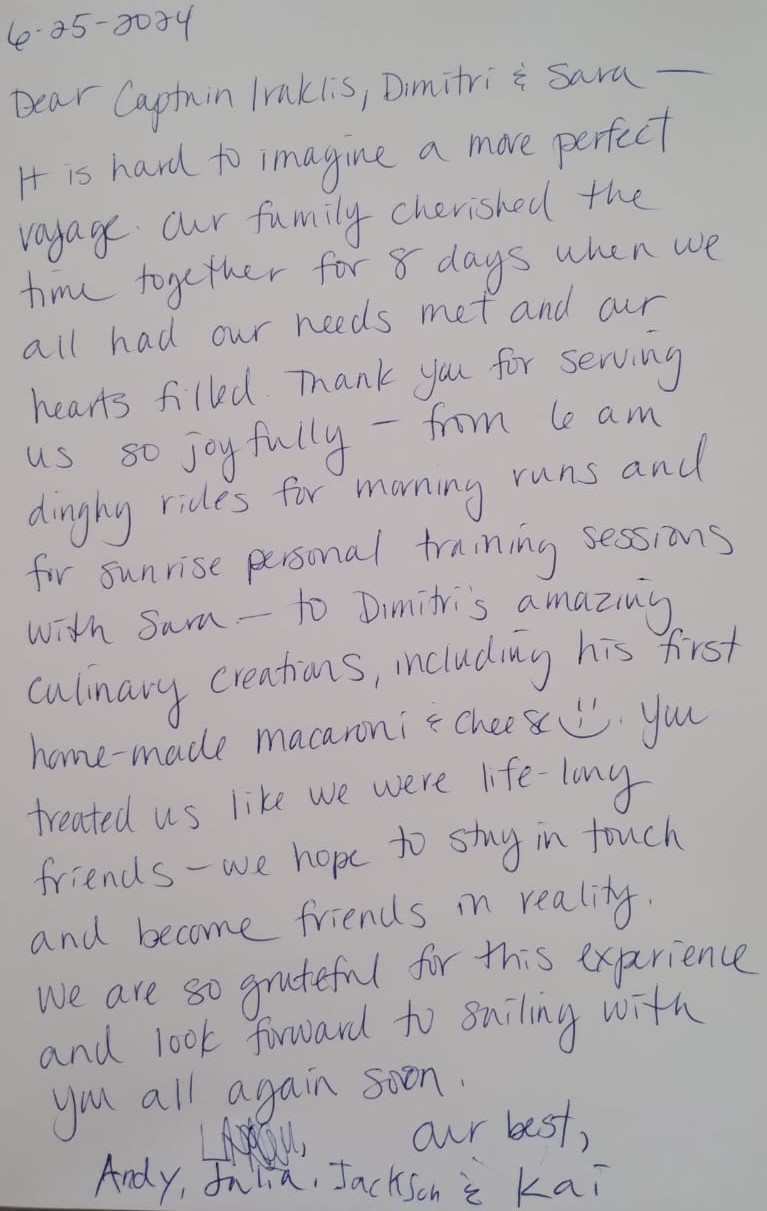 6-25-2024
Dear Captain Iraklis, Dimitri & Sara —
It is hard to imagine a more perfect
voyage. Our family cherished the
time together for 8 days when we
all had our needs met and our
hearts filled. Thank you for serving
us so joyfully – from 6 am
dinghy rides for morning runs and
for sunrise personal training sessions
with Sara – to Dimitri's amazing
culinary creations, including his first
home-made macaroni & cheese. You
treated us like we were life-long
friends – we hope to stay in touch
and become friends in reality.
We are so grateful for this experience
and look forward to sailing with
you all again soon.
Our best,
Andy, Julia, Jackson & Kai